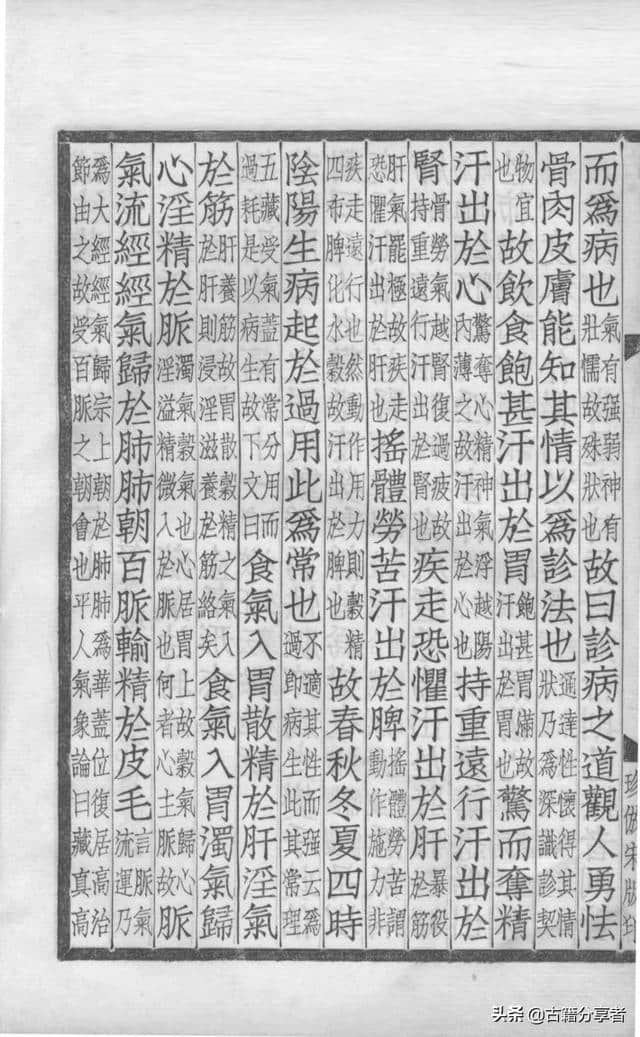 而爲病也氣有强弱神有壯懦故殊狀也故曰診病之道觀人勇怯
骨肉皮膚能知其情以爲診法也通達性懷得其情狀乃爲深識診契
物宜也故飲食飽甚汗出於胃飽甚胃滿故汗出於胃也驚而奪精
汗出於心驚奪心精神氣浮越陽內薄之故汗出於心也持重遠行汗出於
腎骨勞氣越腎復過疲故持重遠行汗出於腎也疾走恐懼汗出於肝暴役於筋
肝氣罷極故疾走恐懼汗出於肝也搖體勞苦汗出於脾搖體勞苦謂動作施力非
疾走遠行也然動作用力則穀精四布脾化水穀故汗出於脾也故春秋冬夏四時
陰陽生病起於過用此爲常也不適其性而强云爲過即病生此其常理
五藏受氣蓋有常分用而過耗是以病生故下文曰食氣入胃散精於肝淫氣
於筋肝養筋故胃散穀精之氣入於肝則浸淫滋養於筋絡矣食氣入胃濁氣歸
心淫精於脈濁氣穀氣也心居胃上故穀氣歸心淫溢精微入於脈也何者心主脈故脈
氣流經經氣歸於肺肺朝百脈輸精於皮毛言脈氣流運乃
爲大經經氣歸宗上朝於肺肺爲華蓋位復居高治節由之故受百脈之朝會也平人氣象論曰藏真高
珍倣宋版印
头条 @古籍分享者